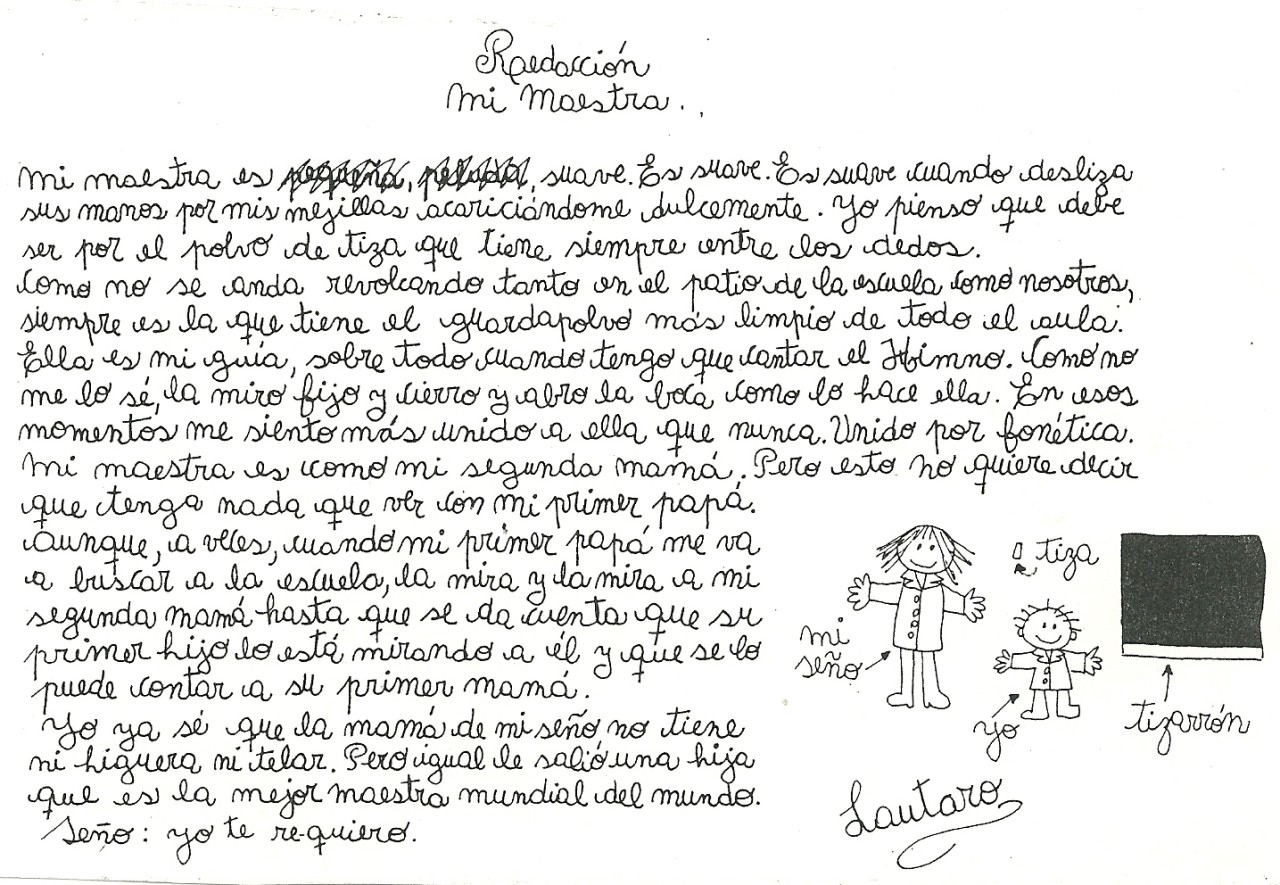 Redacción
Mi Maestra.
Mi maestra es pequeña, peluda, suave. Es suave. Es suave cuando desliza
sus manos por mis mejillas acariciándome dulcemente. Yo pienso que debe
ser por el polvo de tiza que tiene siempre entre los dedos.
Como no se anda revolcando tanto en el patio de la escuela como nosotros,
siempre es la que tiene el guardapolvo más limpio de todo el aula.
Ella es mi guía, sobre todo cuando tengo que cantar el Himno. Como no
me lo sé, la miro fijo y cierro y abro la boca como lo hace ella. En esos
momentos me siento más unido a ella que nunca. Unido por fonética.
Mi maestra es como mi segunda mamá. Pero esto no quiere decir
que tenga nada que ver con mi primer papá.
Aunque, a veces, cuando mi primer papá me va
a buscar a la escuela, la mira y la mira a mi
segunda mamá hasta que se da cuenta que su
primer hijo lo está mirando a él y que se lo
puede contar a su primer mamá.
Yo ya sé que la mamá de mi seño no tiene
ni higuera ni telar. Pero igual le salió una hija
que es la mejor maestra mundial del mundo.
Seño: yo te re-quiero.
tiza
mi
seño
yo
tizarrón
Lautaro